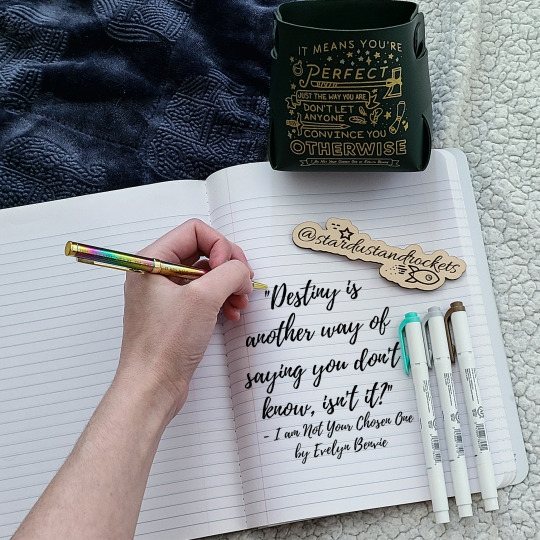 IT MEANS YOU'RE
PERFECT
JUST THE WAY YOU ARE
DON'T LET
ANYONE
CONVINCE YOU
OTHERWISE
I Am Not Your Chosen One by Evelyn Benvie
@stardustandrockets
"Destiny is
another way of
saying you don't
know, isn't it?"
- I am Not Your Chosen One
by Evelyn Benvie